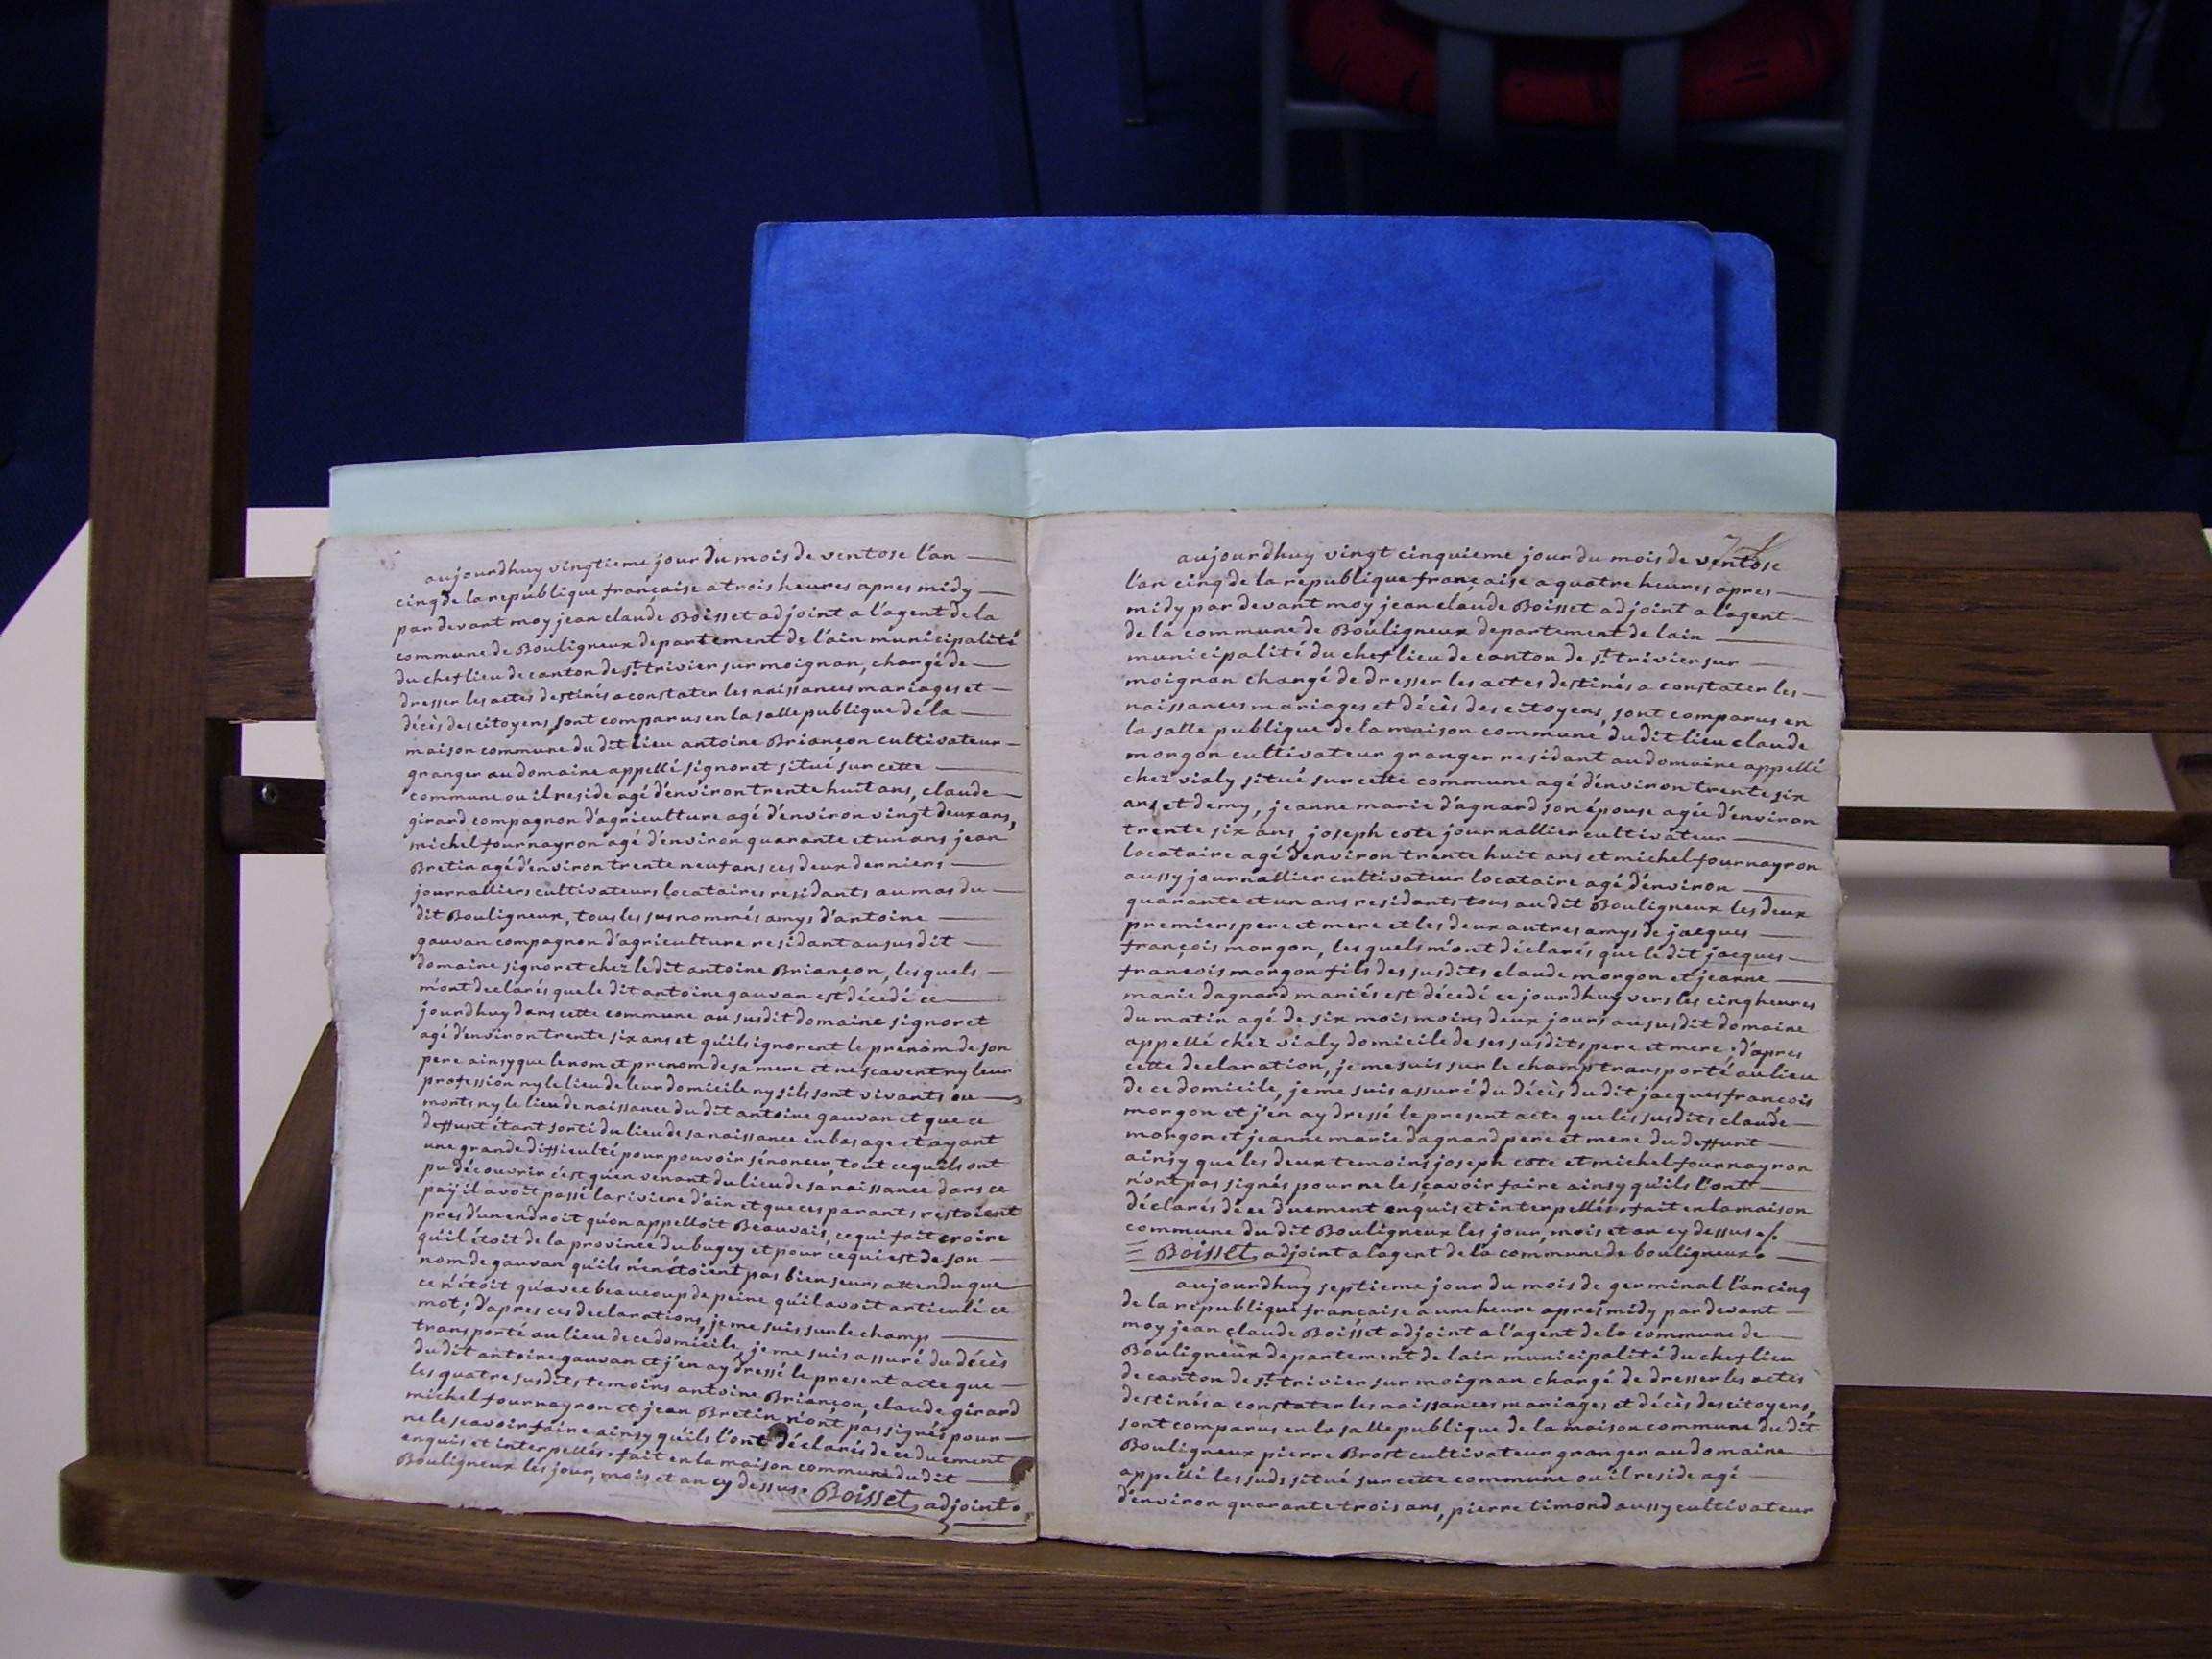 aujourdhuy vingtieme jour du mois de ventose l'an
cinq de la republique française a trois heures apres midy
par devant moy jean claude Boisset adjoint a l'agent de la
commune de Bouligneux departement de l'ain municipalité
du chef lieu de canton de st. trivier sur moignan, chargé de
dresser les actes destinés a constater les naissances mariages et
décès des citoyens, sont comparus en la salle publique de la
maison commune du dit lieu antoine Briançon cultivateur
granger au domaine appellé signoret situé sur cette
commune ou il reside agé d'environ trente huit ans, claude
girard compagnon d'agriculture agé d'environ vingt deux ans,
michel fournayron agé d'environ quarante et un ans jean
Bretin agé d'environ trente neuf ans ces deux derniers
journalliers cultivateurs locataires residants au mas du
dit Bouligneux, tous les susnommés amys d'antoine
gauvan compagnon d'agriculture residant au susdit
domaine signoret chez le dit antoine Briançon, lesquels
m'ont declarés que le dit antoine gauvan est décédé ce
jourdhuy dans cette commune au susdit domaine signoret
agé d'environ trente six ans et qu'ils ignorent le prenom de son
pere ainsy que le nom et prenom de sa mere et ne scavent ny leur
profession ny le lieu de leur domicile ny s'ils sont vivants ou
morts ny le lieu de naissance du dit antoine gauvan et que ce
deffunt étant sorti du lieu de sa naissance en bas age et ayant
une grande difficulté pour pouvoir s'énoncer, tout ce qu'ils ont
pu découvrir c'est qu'en venant du lieu de sa naissance dans ce
paÿ il avoit passé la riviere d'ain et que ces parants restoient
pres d'un endroit qu'on appelloit Beauvais, ce qui fait croire
qu'il étoit de la province du bugey et pour ce qui est de son
nom de gauvan qu'ils n'en étoient pas bien seurs attendu que
ce n'étoit qu'avec beaucoup de peine qu'il avoit articulé ce
mot; d'apres ces declarations, je me suis sur le champ
transporté au lieu de ce domicile, je me suis assuré du décès
du dit antoine gauvan et j'en ay dressé le present acte que
les quatre susdits temoins antoine Briançon, claude girard
michel fournayron et jean Bretin n'ont pas signés pour
ne le scavoir faire ainsy qu'ils l'ont déclarés de ce duement
enquis et interpellés. fait en la maison commune du dit
Bouligneux les jour, mois et an cy dessus. Boisset adjoint.
aujourdhuy vingt cinquieme jour du mois de ventose
l'an cinq de la republique française a quatre heures apres
midy par devant moy jean claude Boisset adjoint a l'agent
de la commune de Bouligneux departement de lain
municipalité du chef lieu de canton de st. trivier sur
moignan chargé de dresser les actes destinés a constater les
naissances mariages et décès des citoyens, sont comparus en
la salle publique de la maison commune du dit lieu claude
morgon cultivateur granger residant au domaine appellé
chez vialy situé sur cette commune agé d'environ trente six
ans et demy, jeanne marie dagnard son épouse agée d'environ
trente six ans, joseph cote journallier cultivateur
locataire agé d'environ trente huit ans et michel fournayron
aussy journallier cultivateur locataire agé d'environ
quarante et un ans residants tous au dit Bouligneux les deux
premiers pere et mere et les deux autres amys de jacques
françois morgon, lesquels m'ont déclarés que le dit jacques
françois morgon fils des susdits claude morgon et jeanne
marie dagnard mariés est décedé ce jourdhuy vers les cinq heures
du matin agé de six mois moins deux jours au susdit domaine
appellé chez vialy domicile de ses susdits pere et mere; d'apres
cette declaration, je me suis sur le champ transporté au lieu
de ce domicile, je me suis assuré du décès du dit jacques françois
morgon et j'en ay dressé le present acte que les susdits claude
morgon et jeanne marie dagnard pere et mere du deffunt
ainsy que les deux temoins joseph cote et michel fournayron
n'ont pas signés pour ne le sçavoir faire ainsy qu'ils l'ont
déclarés de ce duement enquis et interpellés. fait en la maison
commune du dit Bouligneux les jour, mois et an cy dessus./.
Boisset adjoint a lagent de la commune de bouligneux.
aujourdhuy septieme jour du mois de germinal l'an cinq
de la republique française a une heure apres midy par devant
moy jean claude Boisset adjoint a l'agent de la commune de
Bouligneux departement de lain municipalité du chef lieu
de canton de st. trivier sur moignan chargé de dresser les actes
destinés a constater les naissances mariages et décès des citoyens,
sont comparus en la salle publique de la maison commune du dit
Bouligneux pierre Brost cultivateur granger au domaine
appellé les suds situé sur cette commune ou il reside agé
d'environ quarante trois ans, pierre timond aussy cultivateur